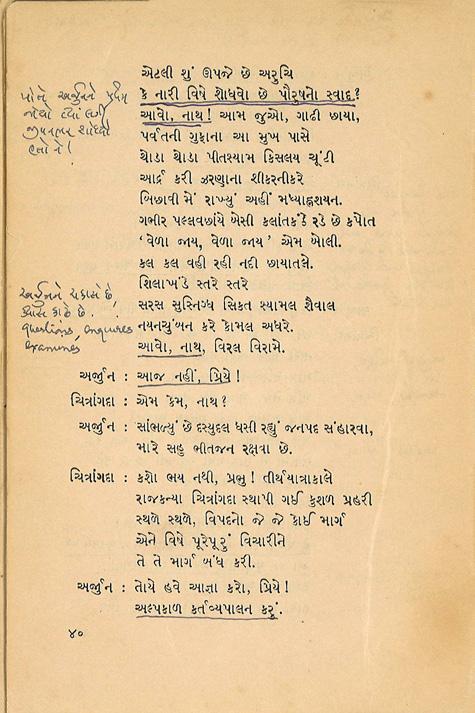 એટલી શું ઊપજે છે અરુચિ
કે નારી વિષે શોધવો છે પૌરુષનો સ્વાદ?
આવો, નાથ! આમ જુઓ, ગાઢી છાયા,
પર્વતની ગુફાના આ મુખ પાસે
થોડા થોડા પીતશ્યામ કિસલય ચૂંટી
આર્દ્ર કરી ઝરણાના શીકરનીકરે
બિછાવી મેં રાખ્યું અહીં મધ્યાહ્નશયન.
ગભીર પલ્લવછાંયે બેસી ક્લાંતકંઠે રડે છે કપોત
‘વેળા જાય, વેળા જાય’ એમ બોલી.
કલ કલ વહી રહી નદી છાયાતલે.
શિલાખંડે સ્તરે સ્તરે
સરસ સુસ્નિગ્ધ સિક્ત શ્યામલ શૈવાલ
નયનચુંબન કરે કોમલ અધરે.
આવો, નાથ, વિરલ વિરામે.
અર્જુન : આજ નહીં, પ્રિયે!
ચિત્રાંગદા : એમ કેમ, નાથ?
અર્જુન : સાંભળ્યું છે દસ્યુદલ ધસી રહ્યું જનપદ સંહારવા,
મારે સહુ ભીતજન રક્ષવા છે.
ચિત્રાંગદા : કશો ભય નથી, પ્રભુ! તીર્થયાત્રાકાલે
રાજકન્યા ચિત્રાંગદા સ્થાપી ગઈ કુશળ પ્રહરી
સ્થળે સ્થળે, વિપદનો જે જે કોઈ માર્ગ
એને વિષે પૂરેપૂરું વિચારીને
તે તે માર્ગ બંધ કરી.
અર્જુન : તોયે હવે આજ્ઞા કરો, પ્રિયે!
અલ્પકાળ કર્તવ્યપાલન કરું.
૪૦
પોતે અર્જુનને પ્રથમ
જોયો ત્યાં લગી
હતો ને!
અર્જુનને ચકાસે છે,
questions, enquires
examines,